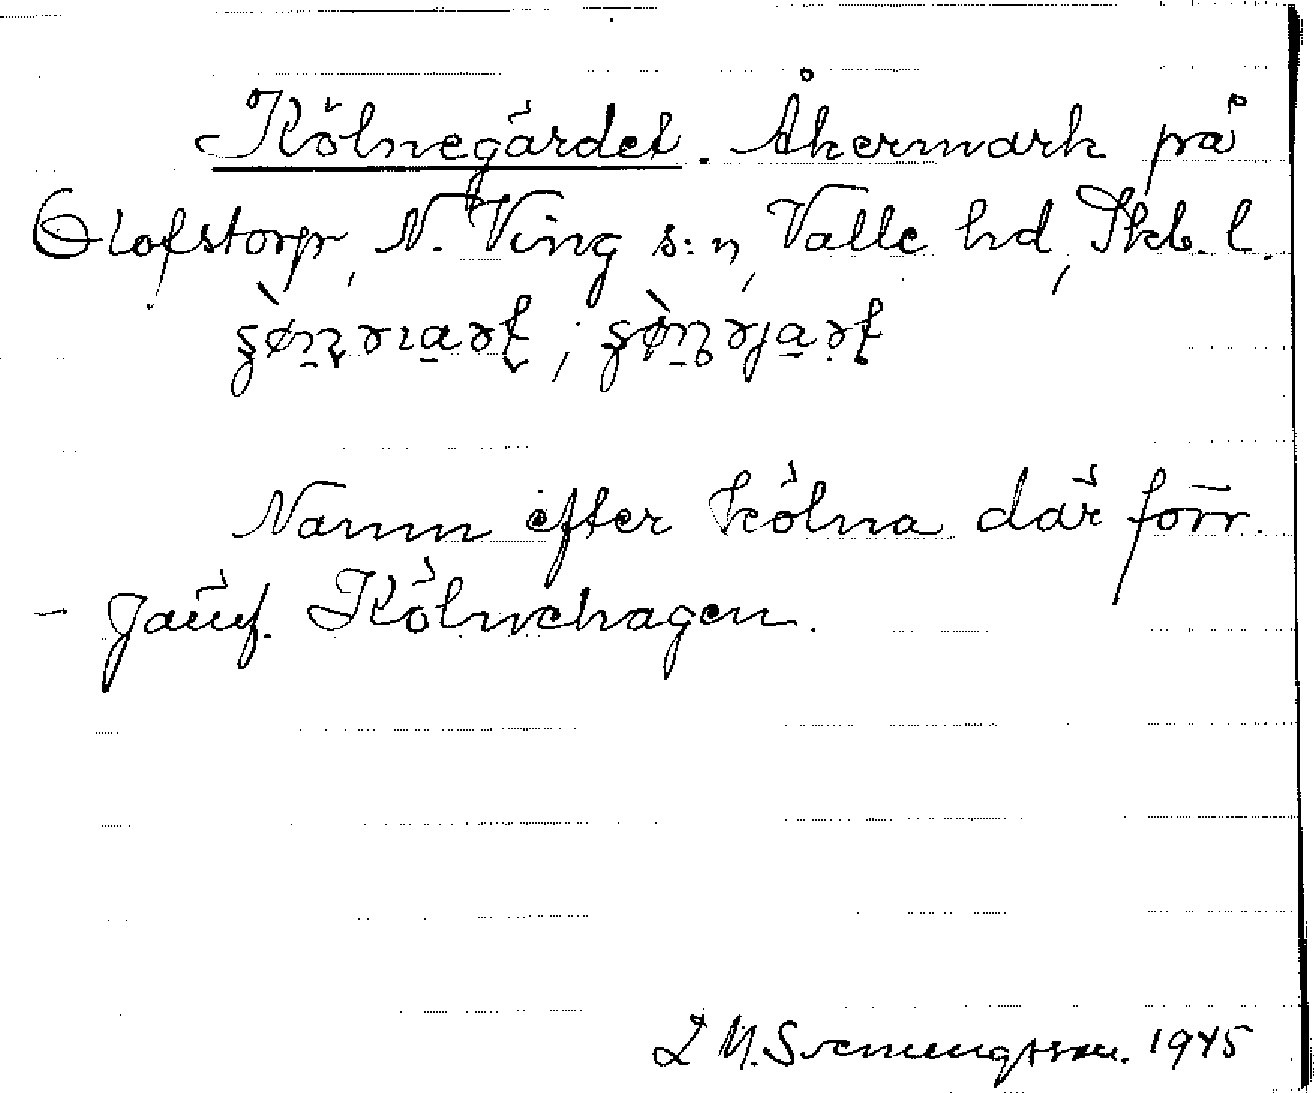 Kölnegärdet. Åkermark på
Olofstorp, N. Ving s:n, Valle hd, Skb. l.
Namn efter kölna där förr.
- Jämf. Kölnehagen.
1945